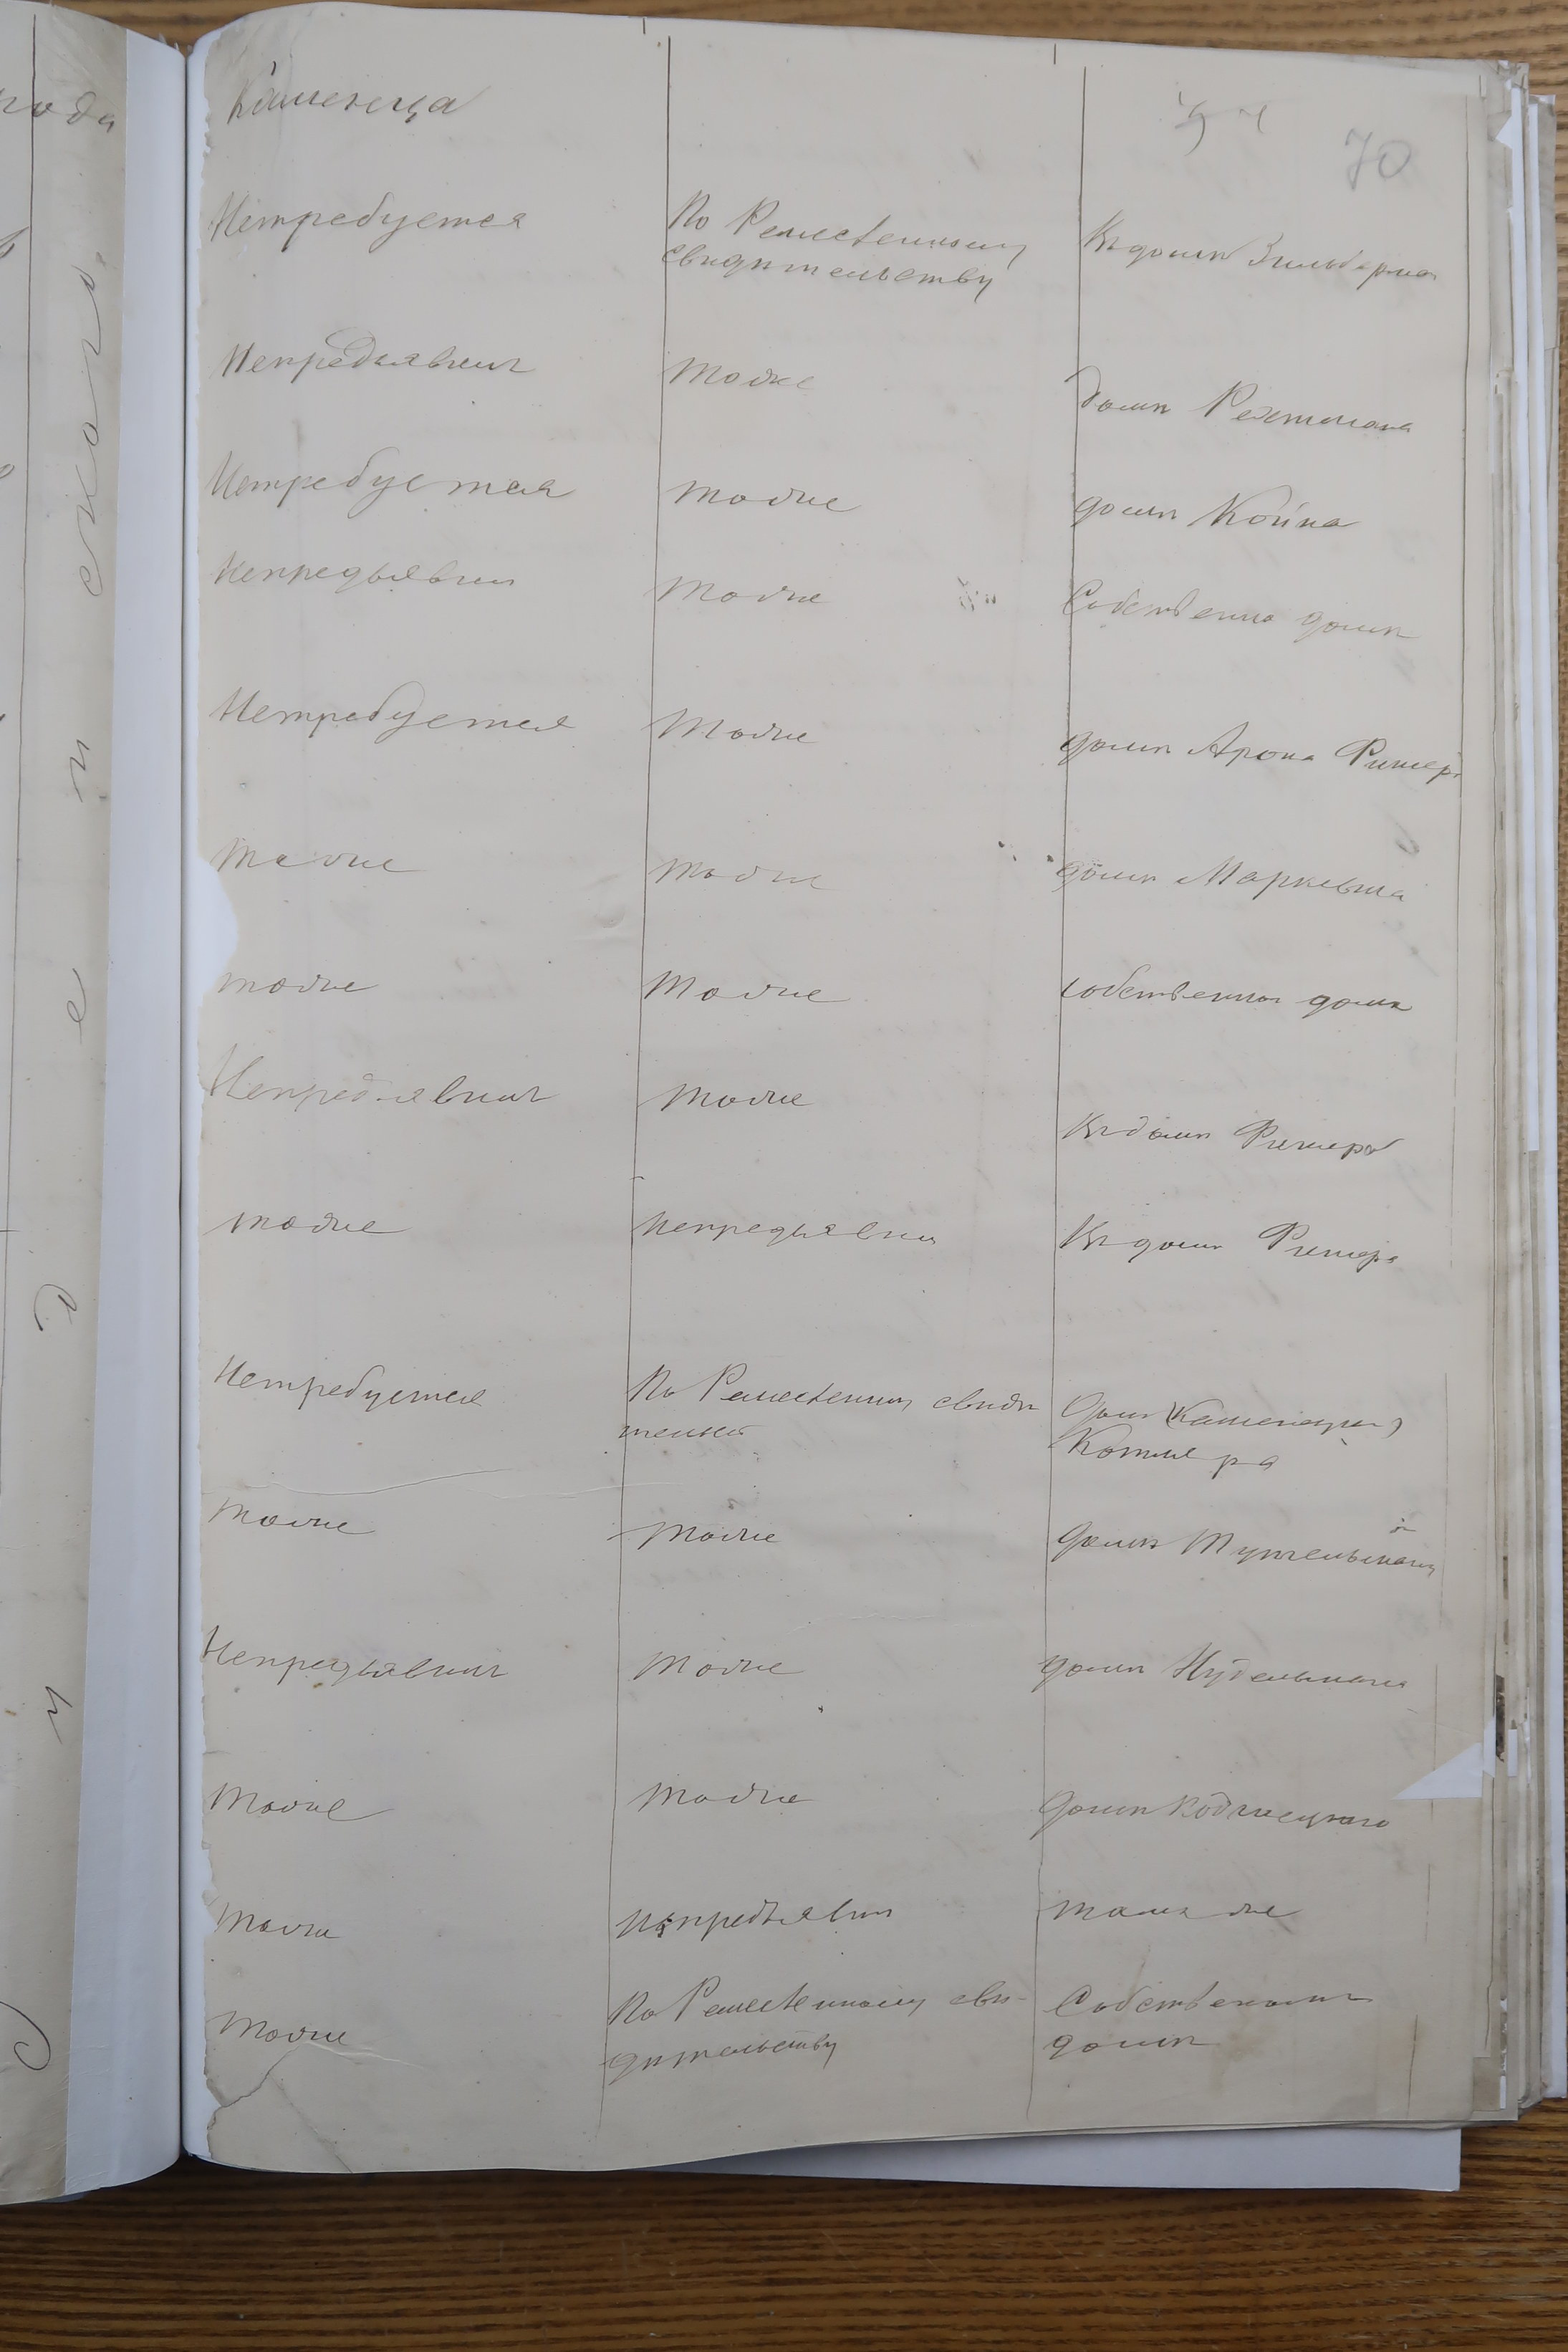 Каменеца
70
Нетребуется
По Ремесленному
свидѣтельству
Въ домѣ Зильберма
Непредъявилъ
тоже
домѣ Рехтмана
Нетребуется
тоже
домѣ Койна
Непредъявилъ
тоже
Собственно домѣ
Нетребуется
тоже
домѣ Арона Ример
тоже
тоже
домѣ Маркевича
тоже
тоже
собственном домѣ
Непредъявилъ
тоже
Въ домѣ Римера
тоже
Непредъявилъ
Въ домѣ Римера
Нетребуется
По Ремесленному свидѣ
домѣ
Котлера
тоже
тоже
домѣ
Непредъявилъ
тоже
домѣ Нудельмана
тоже
тоже
домѣ
тоже
Непредъявилъ
тамъ же
тоже
По Ремесленному сви-
дѣтельству
Собственномъ
домѣ